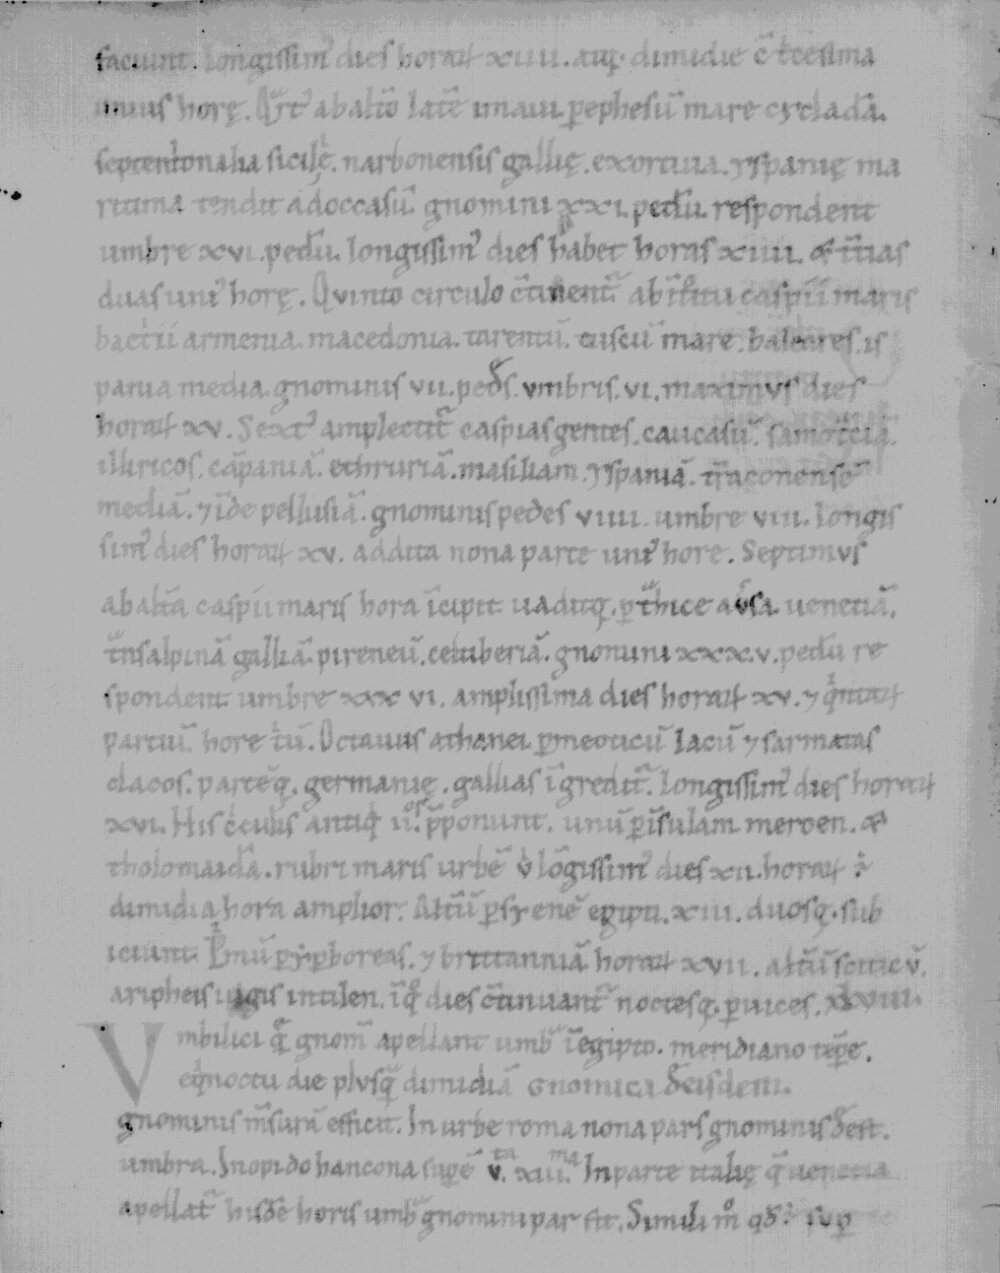 faciunt. longissim᾽ dies horaꝝ xiiii. atꝗ; dimidie c̄ t̄cesima
unius horę. Qͣrt᾽ ab alt̄o lat̄e imaui. ꝑ ephesū mare cycladā.
septentͥonalia sicilię. narbonensis gallię. exortiua. yspanię ma
ritima tendit ad occasū. gnomini xxi. pedū. respondent
umbre xvi. pedū. longissim᾽ dies habet horas xiiii. & t̄tias
duas uni᾽ horę. Quinto circulo c̄tinent᷑ ab intͦitu caspii maris
bactͥii armenia. macedonia. tarentū. tuscū mare. baleares. is
pania media. gnominis vii. pedͦs. vmbris. vi. maximvs dies
horaꝝ xv. Sext᾽ amplectit᷑ caspias gentes. caucasū. samot̄ciā.
illiricos. cāpaniā. ethruriā. masiliam. yspaniā. tr̄raconensē
mediā. ⁊ īde pellusiā. gnominis pedes viiii. umbre viii. longis
sim᾽ dies horaꝝ xv. addita nona parte uni᾽ hore. Septimvs
ab alt̄a caspii maris hora īcipit uaditꝗ; ꝑ t̄hice auͥsa. uenetiā.
tͣnsalpinā galliā. pireneū. celtiberiā. gnonuni xxx.v. pedū re
spondent umbre xxx vi. amplissima dies horaꝝ xv. ⁊ qͥntaꝝ
partiū. hore tͥū. Octauus athanei. ꝑ meoticū lacū ⁊ sarmatas
dacos. partēq;. germanię. gallias īgredit᷑. longissim᾽ dies horaꝝ
xvi. His cͥculis antiqͥ iiͦs. p̄ponunt. unū ꝑ īsulam meroen. &
tholomaidā. rubri maris urbē uͥ lōgissim᾽ dies xii. horaꝝ ÷
dimidia hora amplior. Alt̄ū ꝑ syenē egipti. xiii. duosq;. sub
iciunt. Pͥmū ꝑ yꝑboreas. ⁊ brittanniā horaꝝ xvii. alt̄ū scitic v̄.
aripheis iugis intilen. īqͦ dies c̄tinuant᷑ noctesq;. ꝑ uices. xxiiii.
Vmbilici qͦ gnom̄ apellant umbͣ ī egipto. meridiano tēꝑe.
eqͥnoctii die plvsqͣ dimidiā gnomica d̄ eisdem.
gnominis m̄surā efficit. In urbe roma nona pars gnominis deͦst.
umbra. In opido hancona suꝑē v.ta xiii.ma In parte italię q̄ uenetia
apellat᷑ hisdē horis umbͣ gnomini par fit. Simili mͦ qd᾽. sup